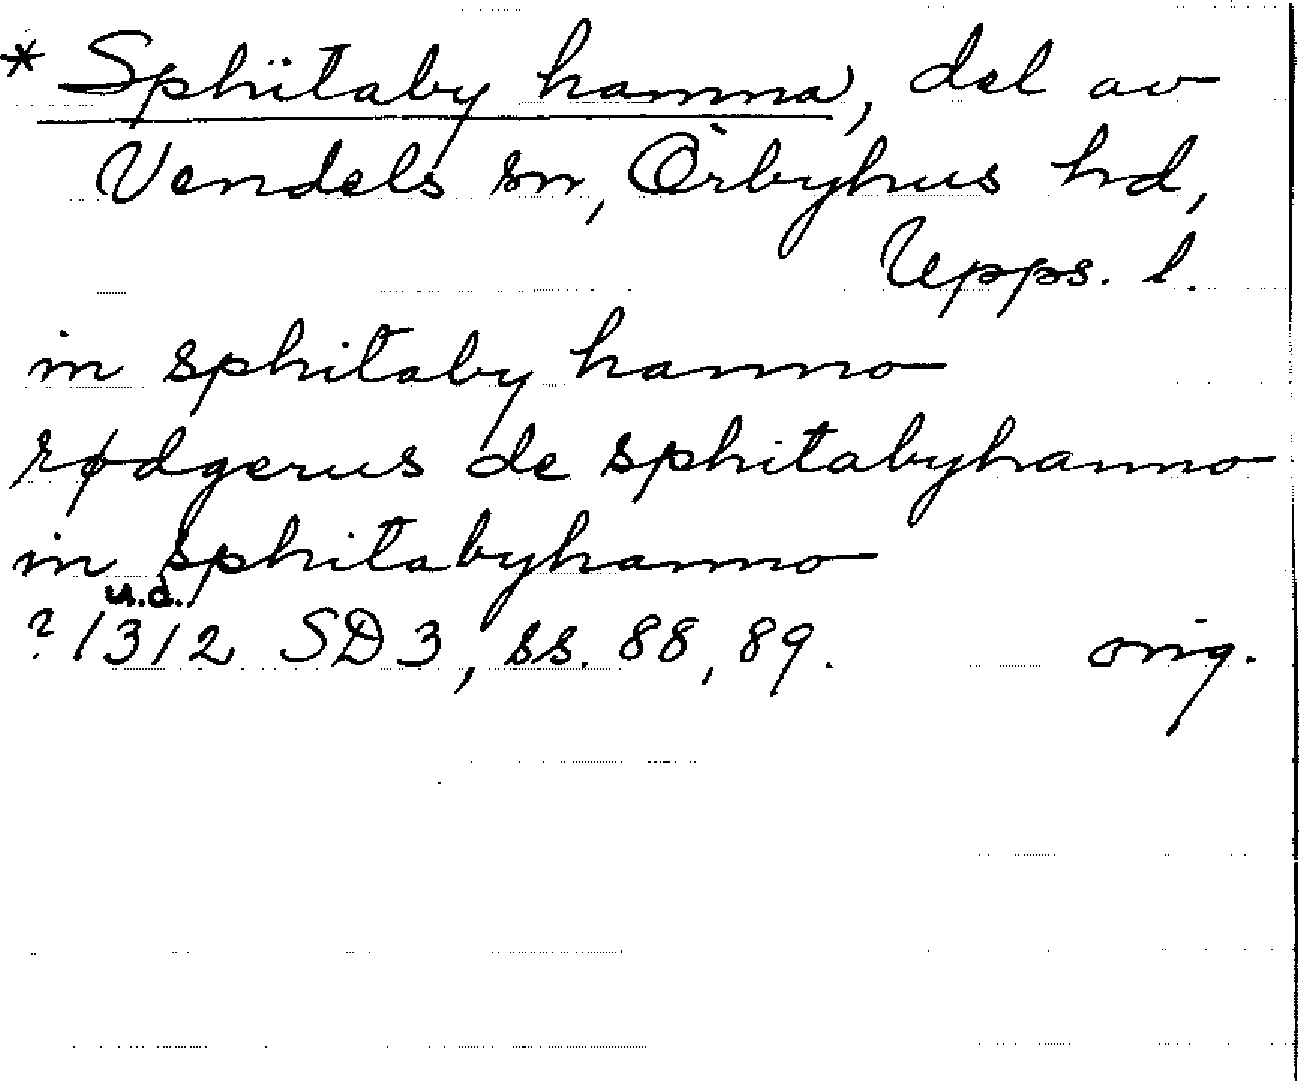 * Sphitaby hamna, del av
Vendels sn, Örbyhus hd,
Upps. l.
in sphitaby hanno
rødgerus de sphitabyhanno
in sphitabyhanno
u.d.
? 1312 SD 3, ss. 88, 89. orig.